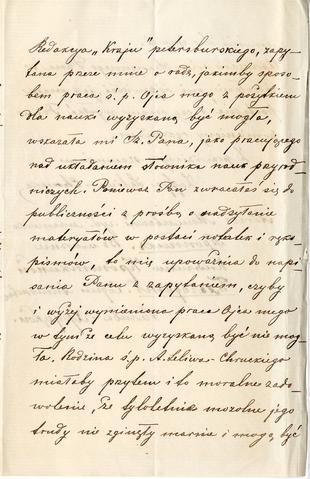 Redakcja „Kraju" petersburskiego, zapy-
tana przeze mnie o radę, jakimby sposo-
bem praca ś. p. Ojca mego z pożytkiem
dla nauki wyzyskaną być mogła,
wskazała mi Sz. Pana, jako pracującego
nad układaniem słownika nauk przyrod-
niczych. Ponieważ Pan zwracałeś się do
publiczności z prośbą o nadsyłanie
materyałów w postaci notatek i ręko-
pismów, to mię upoważnia do napi-
sania Panu z zapytaniem, czyby
i wyżej wymieniona praca Ojca mego
w tymże celu wyzyskaną być nie mog-
ła. Rodzina ś. p. A. Leliwa-Chruckiego
miałaby przytem i to moralne zado-
wolenie, że tyloletnie mozolne jego
trudy nie zginęły marnie i mogą być